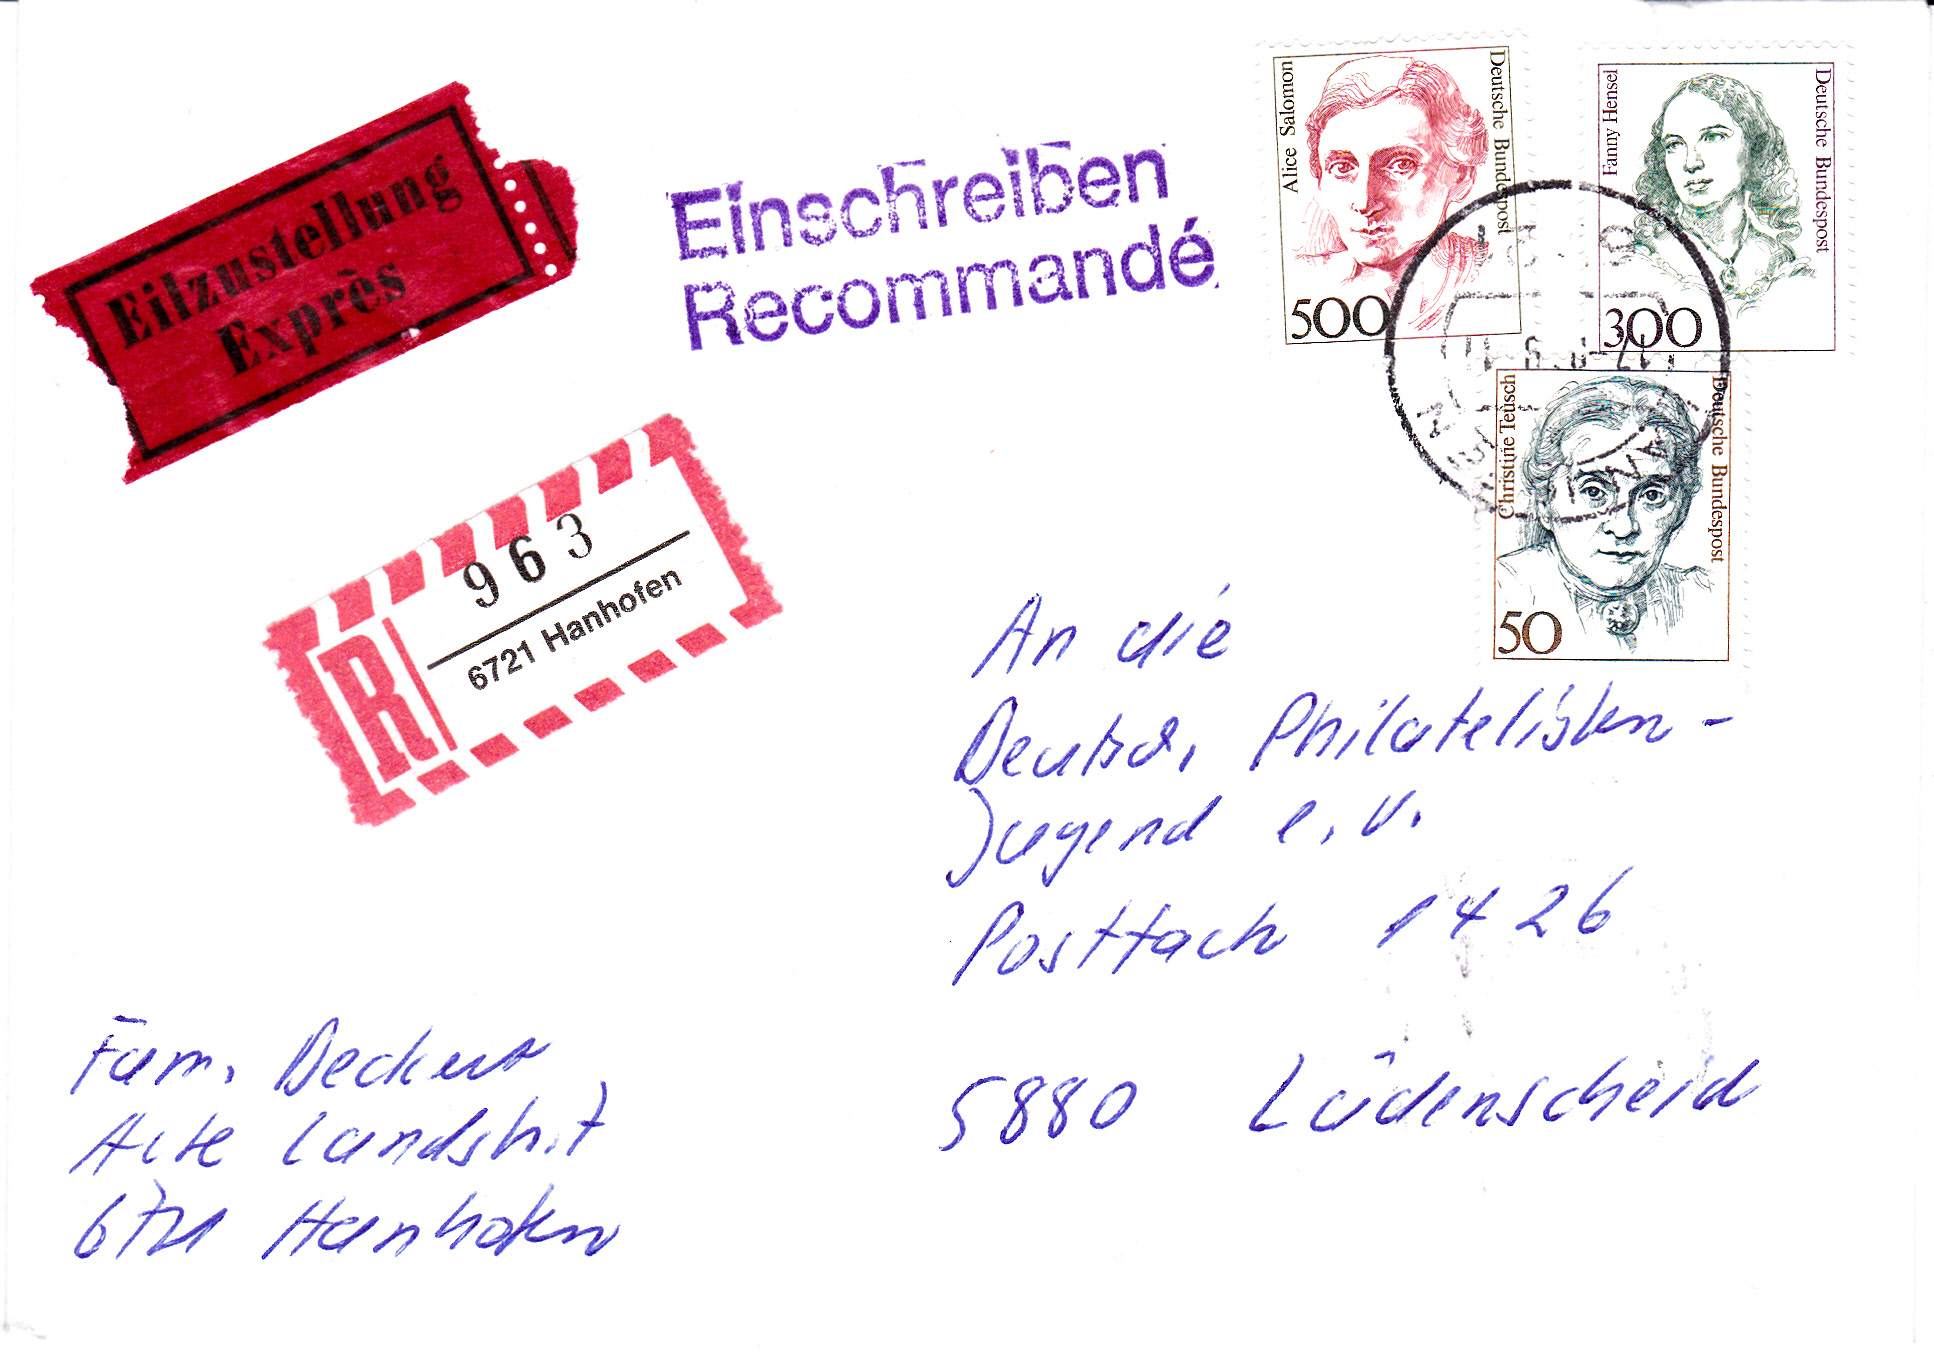 Eilzustellung
Exprès
Einschreiben
Recommandé
Alice Salomon
Deutsche Bundespost
500
Fanny Hensel
Deutsche Bundespost
300
Christine Teusch
Deutsche Bundespost
50
R
963
6721 Hanhofen
An die
Deutsch. Philatelisten-
Jugend e.V.
Postfach 1426
5880 Lüdenscheid
Fam.
Alte Landstr.
6721 Hanhofen